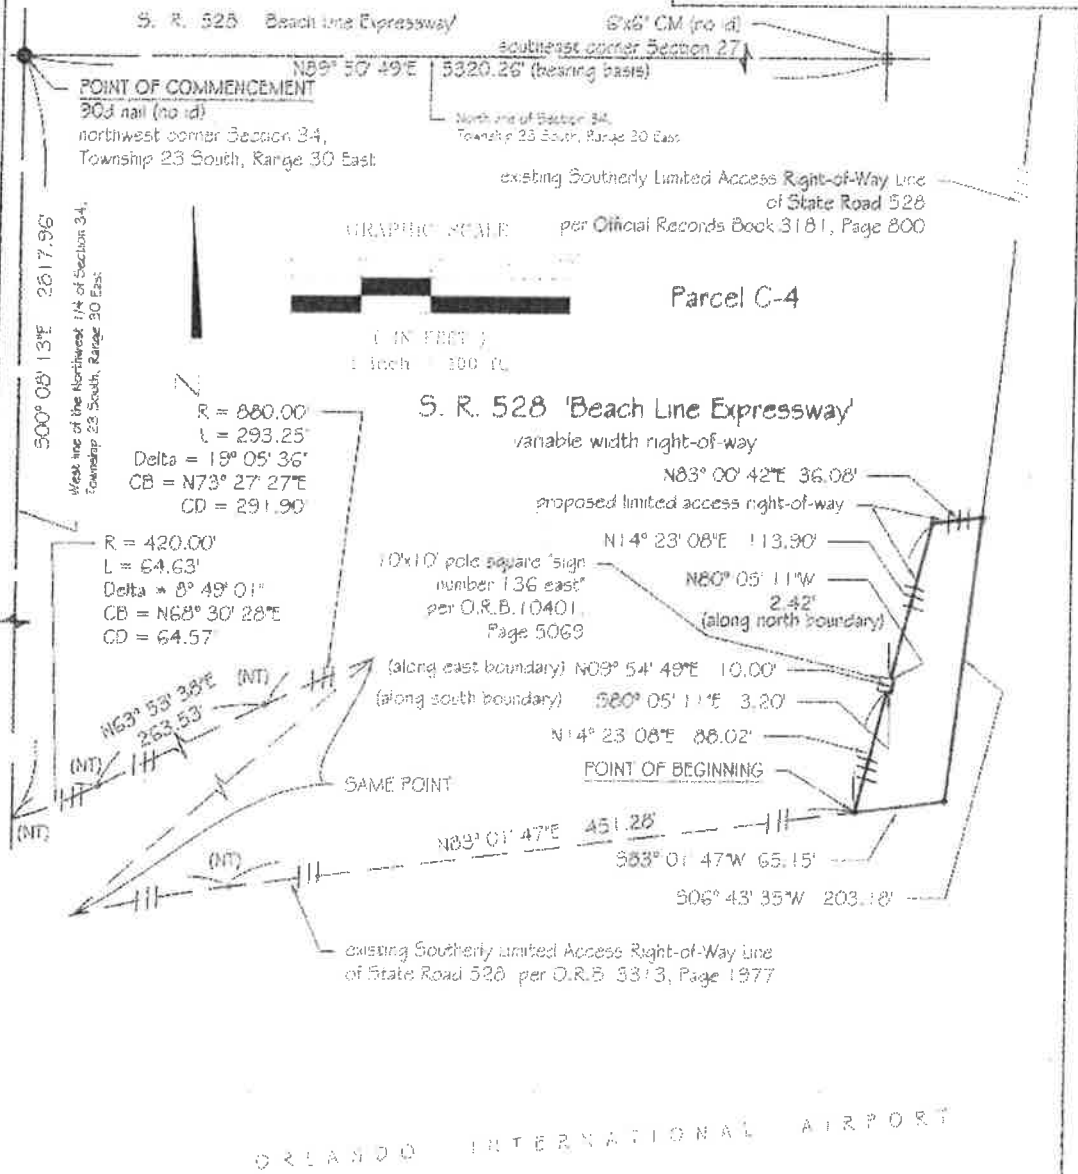 S. R. 528 Beach Line Expressway'
6"x6" CM (no id)
southeast corner Section 27
N89° 50' 49"E 5320.26' (bearing basis)
POINT OF COMMENCEMENT
90d nail (no id)
northwest corner Section 34,
Township 23 South, Range 30 East
North line of Section 34,
Township 23 South, Range 30 East
existing Southerly Limited Access Right-of-Way Line
of State Road 528
per Official Records Book 3181, Page 800
S00° 08' 13"E 2817.96'
West line of the Northwest 1/4 of Section 34,
Township 23 South, Range 30 East
GRAPHIC SCALE
( IN FEET )
1 inch 100 ft.
Parcel C-4
N
R = 880.00'
L = 293.25'
Delta = 19° 05' 36"
CB = N73° 27' 27"E
CD = 291.90'
S. R. 528 'Beach Line Expressway'
variable width right-of-way
N83° 00' 42"E 36.08'
proposed limited access right-of-way
R = 420.00'
L = 64.63'
Delta = 8° 49' 01"
CB = N68° 30' 28"E
CD = 64.57'
N14° 23' 08"E 113.90'
10'x10' pole square "sign
number 136 east"
per O.R.B. 10401,
Page 5069
N80° 05' 11"W
2.42'
(along north boundary)
(along east boundary) N09° 54' 49"E 10.00'
(along south boundary) S80° 05' 11"E 3.20'
N14° 23' 08"E 88.02'
N63° 53' 38"E (NT)
263.53'
(NT)
(NT)
POINT OF BEGINNING
SAME POINT
N83° 01' 47"E 451.28'
(NT)
S83° 01' 47"W 65.15'
S06° 43' 35"W 203.18'
existing Southerly Limited Access Right-of-Way Line
of State Road 528 per O.R.B 3313, Page 1977
ORLANDO INTERNATIONAL AIRPORT